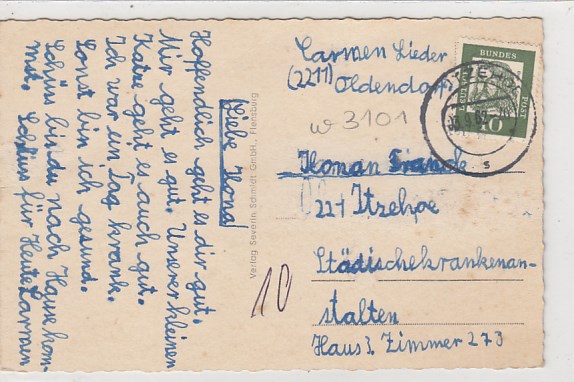 Liebe Ilona!
Hoffendlich geht es dir gut.
Mir geht es gut. Unserer kleinen
Katze geht es auch gut.
Ich war ein Tag krank.
Sonst bin ich gesund.
Schüss bis du nach Hause kom-
mst. Schüss für Heute Carmen
Verlag Severin Schmidt GmbH., Flensberg
Carmen Lieder
(2211) Oldendorf
w 3101
Ilonan Franck
221 Itzehoe
Städischekrankenan-
stalten
Haus 3. Zimmer 273
10
DEUTSCHE
BUNDES
POST
10
ITZEHOE